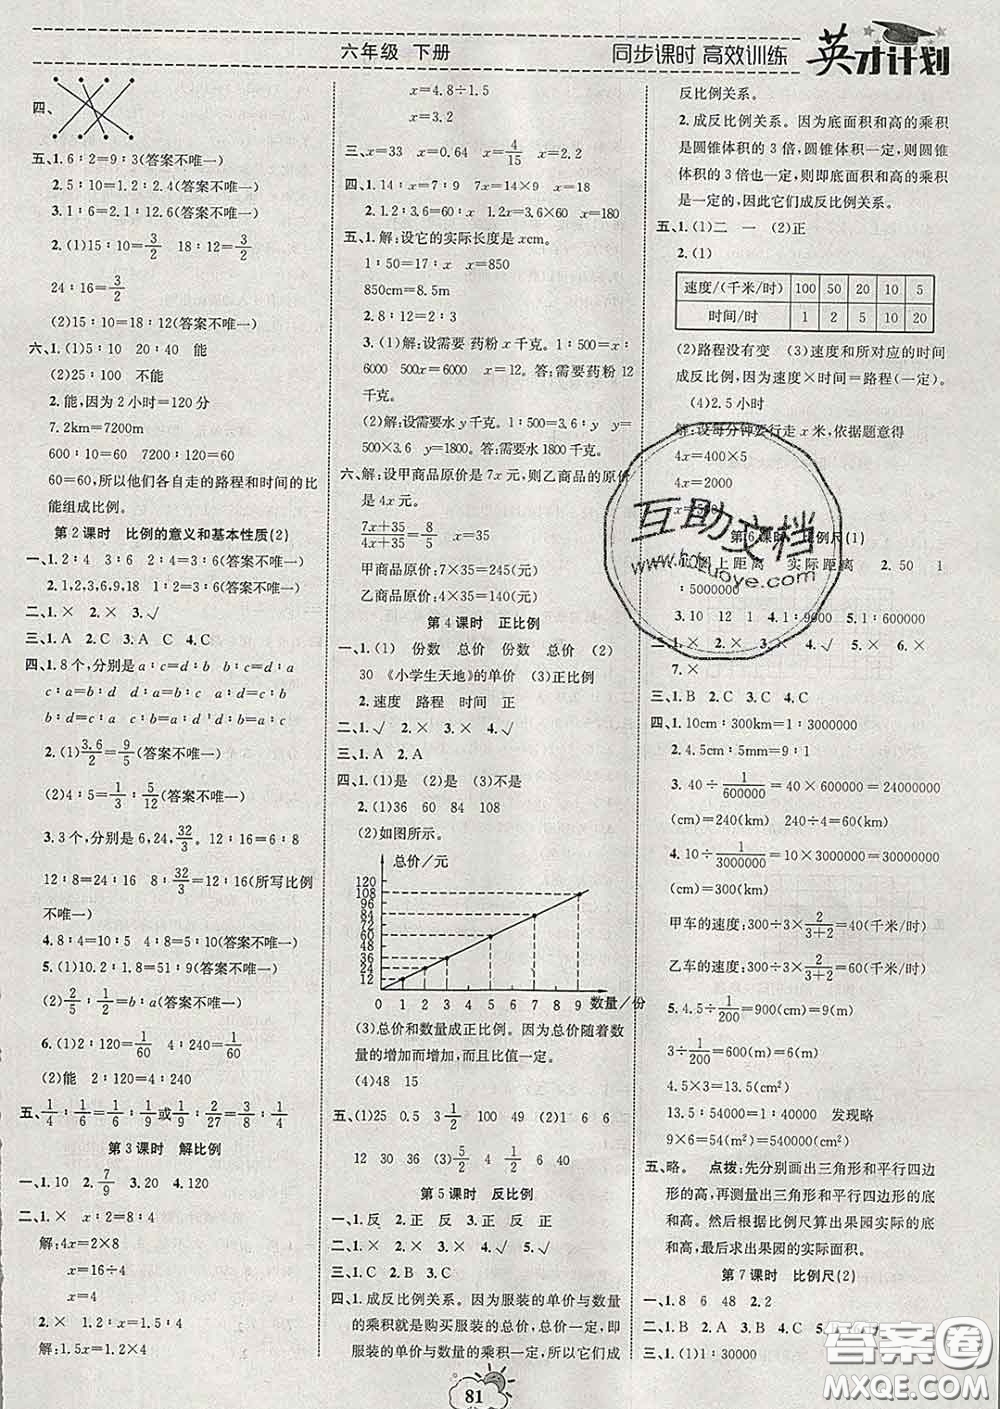 六年级 下册
同步课时 高效训练
英才计划
四、
五、1.6∶2=9∶3(答案不唯一)
2.5∶10=1.2∶2.4(答案不唯一)
3.1∶6=2.1∶12.6(答案不唯一)
2.(1)15∶10=3/2 18∶12=3/2
24∶16=3/2
(2)15∶10=18∶12(答案不唯一)
六、1.(1)5∶10 20∶40 能
(2)25∶100 不能
2.能,因为2小时=120分
7.2km=7200m
600∶10=60 7200∶120=60
60=60,所以他们各自走的路程和时间的比
能组成比例。
第2课时 比例的意义和基本性质(2)
一、1.2∶4 3∶6 1∶2=3∶6(答案不唯一)
2.1,2,3,6,9,18 1∶2=3∶6(答案不唯一)
二、1.× 2.× 3.√
三、1.A 2.C 3.A C 4.C
四、1.8个,分别是a∶c=d∶b c∶d=d∶a
c∶a=b∶d d∶a=b∶c a∶d=c∶b
b∶d=c∶a b∶c=d∶a d∶b=a∶c
2.(1)3.6/2=9/5(答案不唯一)
(2)4∶5=1/3∶5/12(答案不唯一)
3.3个,分别是6,24,32/3。12∶16=6∶8
12∶8=24∶16 12∶8=32/3=16(所写比例
不唯一)
4.8∶4=10∶5 4∶8=5∶10(答案不唯一)
5.(1)10.2∶1.8=51∶9(答案不唯一)
(2)2/5∶1/2=b∶a(答案不唯一)
6.(1)2∶120=1/60 4∶240=1/60
(2)能 2∶120=4∶240
五、1/4∶1/6=1/6∶1/9或1/9∶2/27=3/8∶1/4
第3课时 解比例
一、1.10 2.7/9 3.20 4.120
二、1.× x∶2=8∶4
解:4x=2×8
x=16÷4
x=4
2.× 3.2∶x=1.5∶4
解:1.5x=1.2×4
x=4.8÷1.5
x=3.2
三、x=33 x=0.64 x=4/15 x=2.2
四、1.14∶x=7∶9 7x=14×9 x=18
2.1.2∶3.6=60∶x 1.2x=3.6×60 x=180
五、1.解:设它的实际长度是xcm。
1∶50=17∶x x=850
850cm=8.5m
2.8∶12=2∶3
3.(1)解:设需要药粉x千克。
x∶6000=1∶500 x=12。答:需要药粉12
千克。
(2)解:设需要水y千克。1∶500=3.6∶y y=
500×3.6 y=1800。答:需要水1800千克。
六、解:设甲商品原价是7x元,则乙商品的原价
是4x元。
7x+35/4x+35=8/5 x=35
甲商品原价:7×35=245(元)
乙商品原价:4×35=140(元)
第4课时 正比例
一、1.(1) 份数 总价 份数 总价 (2)
30 《小学生天地》的单价 (3)正比例
2.速度 路程 时间 正
二、1.√ 2.× 3.× 4.√
三、1.A 2.A
四、1.(1)是 (2)是 (3)不是
2.(1)36 60 84 108
(2)如图所示。
总价/元
120
108
96
84
72
60
48
36
24
12
0 1 2 3 4 5 6 7 8 9 数量/份
(3)总价和数量成正比例。因为总价随着数
量的增加而增加,而且比值一定。
(4)48 15
五、(1)25 0.5 3 1/2 100 49 (2)1 6 6
12 30 36 (3)5/2 4 1/2 40 60
第5课时 反比例
一、1.反 2.正 反 3.正 反 正
二、1.× 2.× 3.× 4.√ 5.√
三、1.C 2.B 3.C
四、1.成反比例关系。因为服装的单价与数量
的乘积就是购买服装的总价,总价一定,即
服装的单价与数量的乘积一定,所以它们成
反比例关系。
2.成反比例关系。因为底面积和高的乘积
是圆锥体积的3倍,圆锥体积一定,则圆锥
体积的3倍一定,则即底面积和高的乘积
是一定的,因此它们成反比例关系。
五、1.(1)二 一 (2)正
2.(1)
速度/(千米/时) 100 50 20 10 5
时间/时 1 2 5 10 20
(2)路程没有变 (3)速度和所对应的时间
成反比例,因为速度×时间=路程(一定)。
(4)2.5小时
解:设每分钟要行走x米,依据题意得
4x=400×5
4x=2000
第6课时 比例尺(1)
上距离 实际距离 2.50 1
∶5000000
3.10 12 1 4.1∶9000 5.1∶600000
二、1.× 2.× 3.× 4.√ 5.× 6.×
7.×
三、1.B 2.C 3.C 4.C
四、1.10cm∶300km=1∶3000000
2.4.5cm∶5mm=9∶1
3.40÷1/600000=40×600000=24000000
(cm)=240(km) 240÷60=4(小时)
4.10÷1/3000000=10×3000000=30000000
(cm)=300(km)
甲车的速度:300÷3×2/3+2=40(千米/时)
乙车的速度:300÷3×3/3+2=60(千米/时)
5.4.5÷1/200=900(cm)=9(m)
3÷1/200=600(cm)=6(m)
4.5×3=13.5(cm²)
13.5∶540000=1∶40000 发现略
9×6=54(m²) 54m²=540000cm²
五、略。 点拨:先分别画出三角形和平行四边
形的高,再测量出三角形和平行四边形的底
和高。然后根据比例尺算出果园实际的底
和高,最后求出果园的实际面积。
第7课时 比例尺(2)
一、1.8 6 48 2.2
二、1.B 2.A
三、1.(1)1∶30000
81
互助文档
答案圈
MXQE.COM